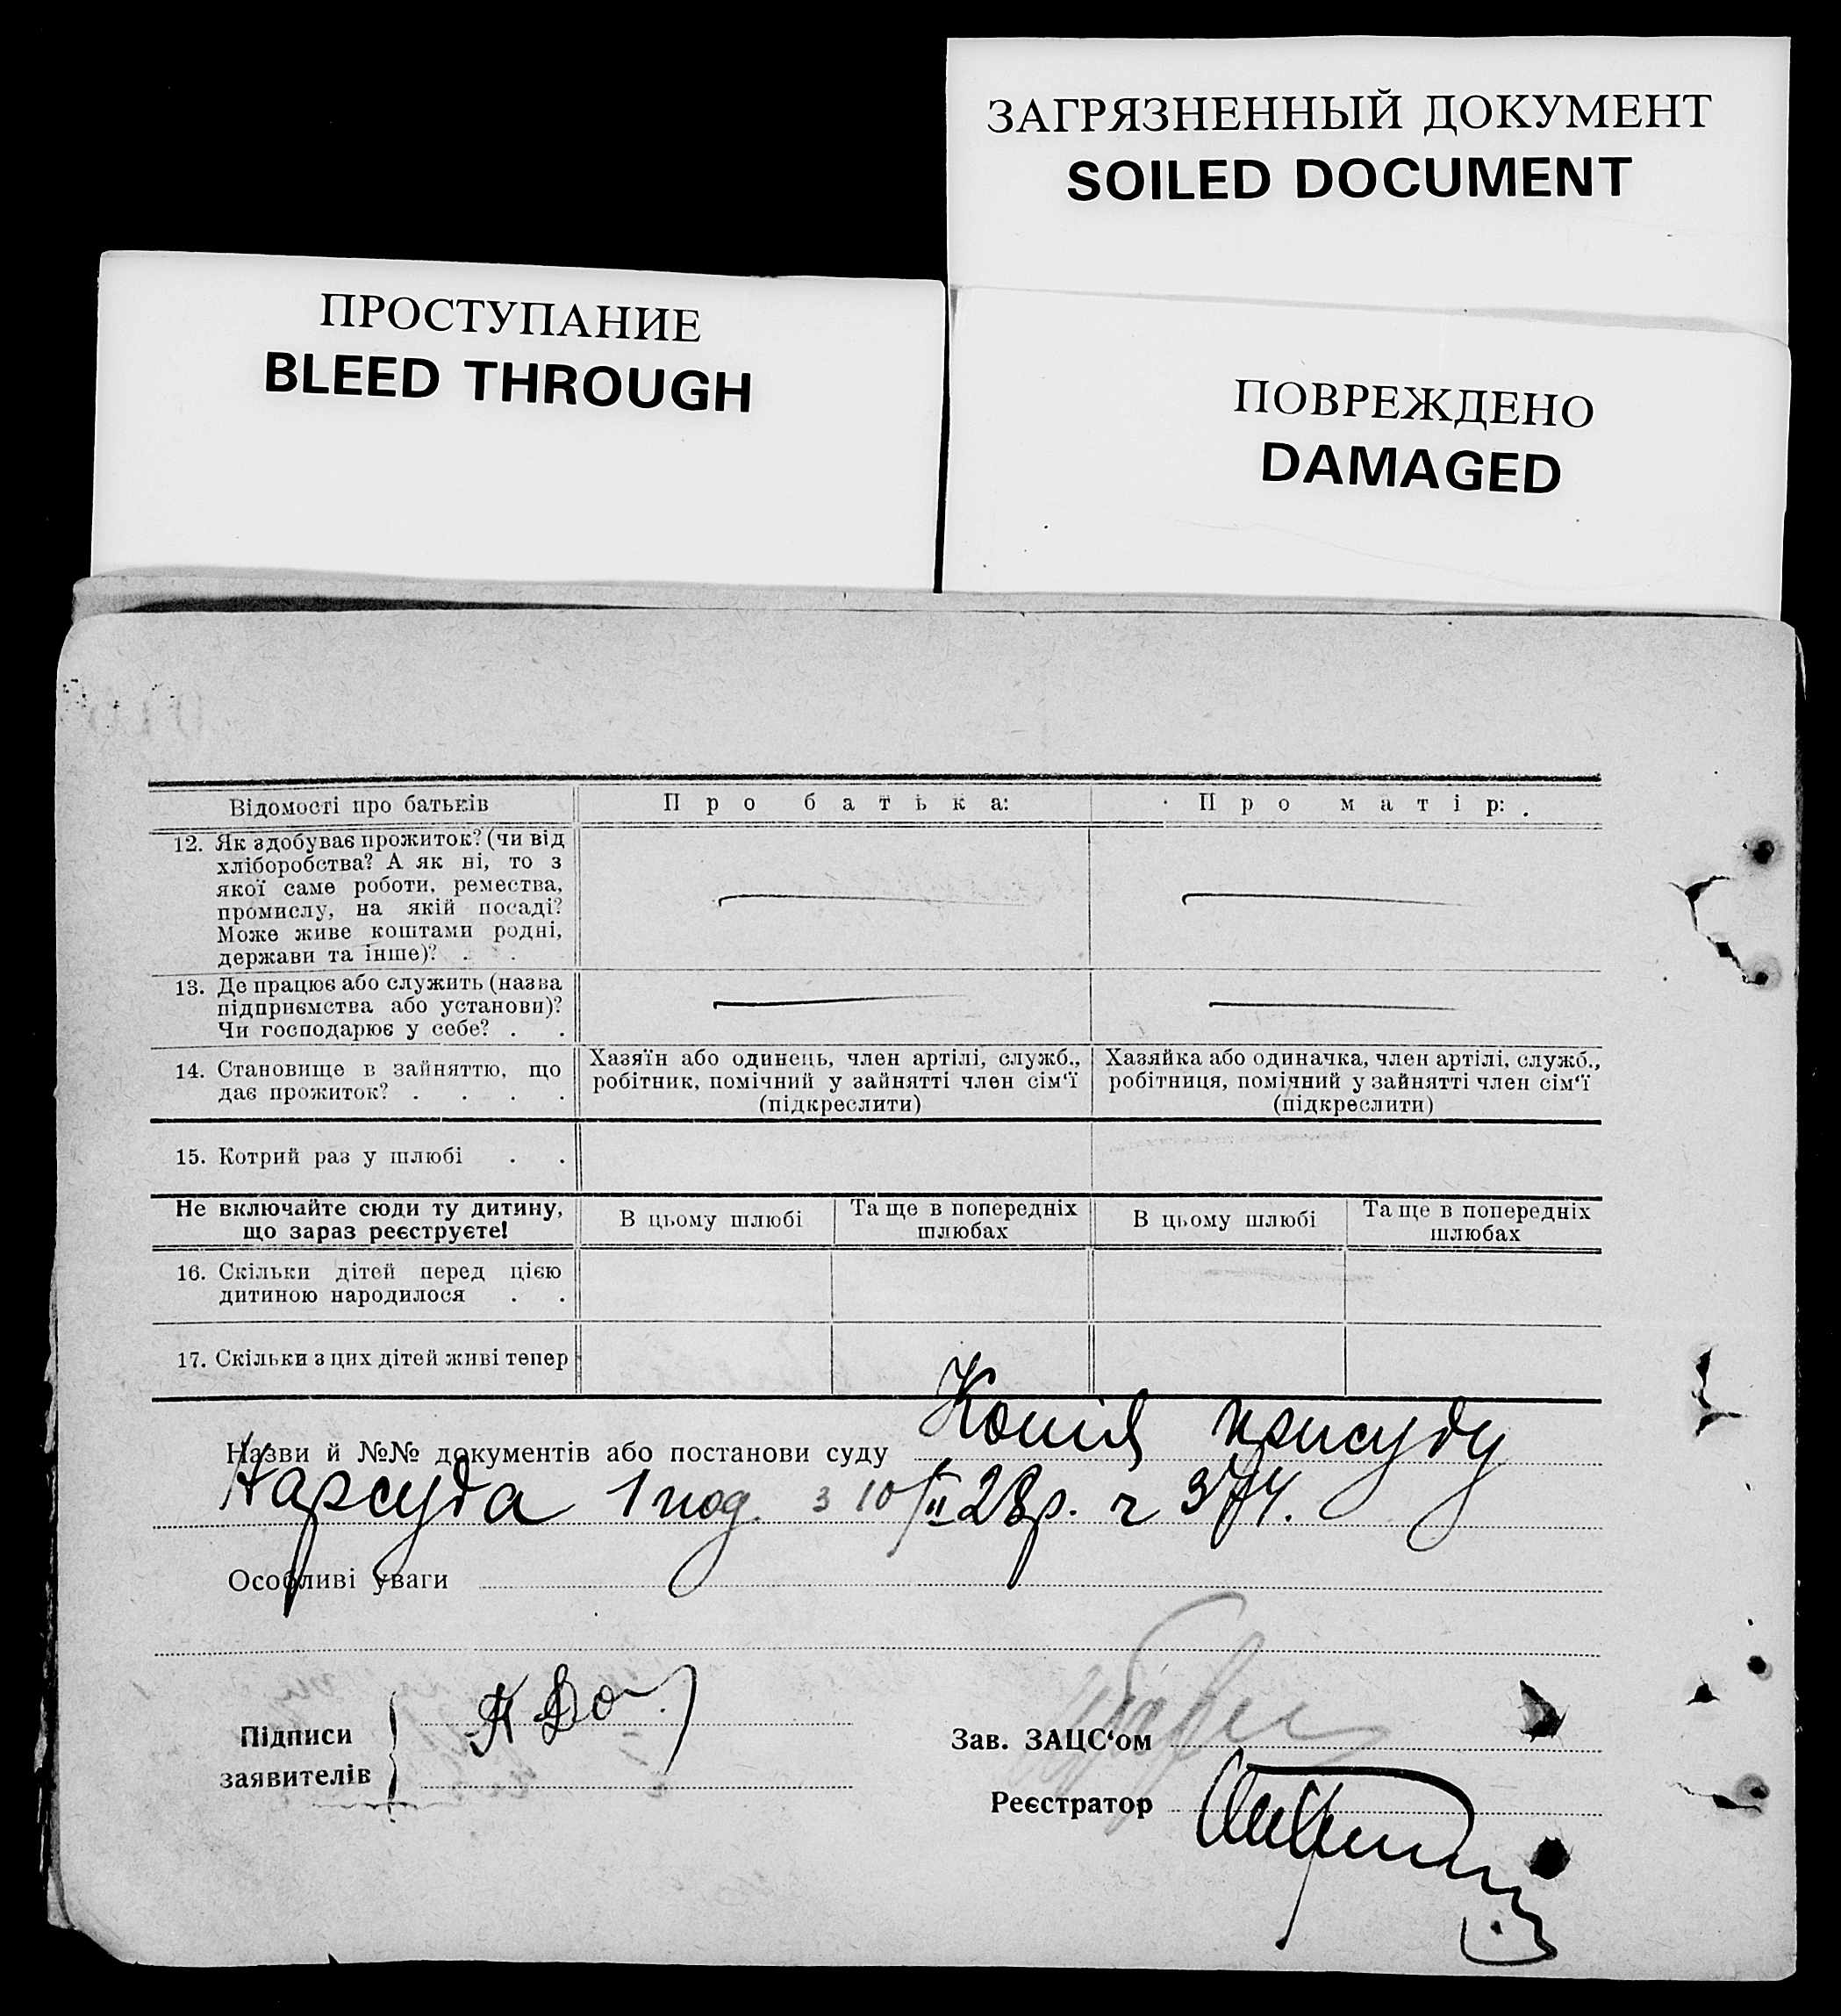 ЗАГРЯЗНЕННЫЙ ДОКУМЕНТ
SOILED DOCUMENT
ПРОСТУПАНИЕ
BLEED THROUGH
ПОВРЕЖДЕНО
DAMAGED
Відомості про батьків
Про батька:
Про матір:
12. Як здобуває прожиток? (чи від
хліборобства? А як ні, то з
якої саме роботи, ремества,
промислу, на якій посаді?
Може живе коштами родні,
держави та інше)? .
13. Де працює або служить (назва
підприємства або установи)?
Чи господарює у себе? . .
14. Становище в зайняттю, що
дає прожиток? . . . .
Хазяїн або одинець, член артілі, служб.,
робітник, помічний у зайнятті член сім'ї
(підкреслити)
Хазяйка або одиначка, член артілі, служб.,
робітниця, помічний у зайнятті член сім'ї
(підкреслити)
15. Котрий раз у шлюбі . .
Не включайте сюди ту дитину,
що зараз реєструєте!
В цьому шлюбі
Та ще в попередніх
шлюбах
В цьому шлюбі
Та ще в попередніх
шлюбах
16. Скільки дітей перед цією
дитиною народилося . .
17. Скільки з цих дітей живі тепер
Назви й №№ документів або постанови суду Копія присуду
Нарсуда 1 під 3 10/II 28р. ч 374.
Особливі уваги
Підписи
заявителів
Зав. ЗАЦС'ом
Реєстратор